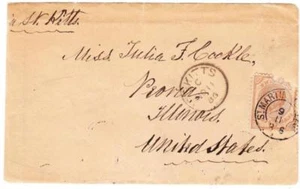 St. Kitts.
Miss Julia F. Cockle,
KITTS
Peoria
ST MARTIN
Illinois.
United States.